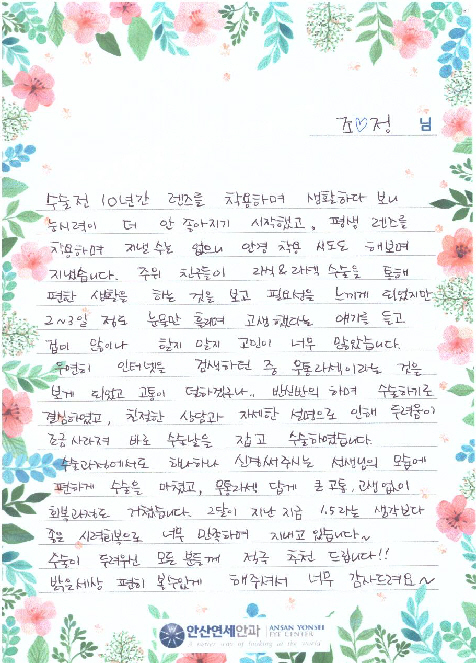 조♡정 님
수술전 10년간 렌즈를 착용하며 생활하다 보니
눈시력이 더 안 좋아지기 시작했고, 평생 렌즈를
착용하며 지낼 수는 없으니 안경 착용 시도도 해보며
지냈습니다. 주위 친구들이 라식&라섹 수술을 통해
편한 생활을 하는 것을 보고 필요성을 느끼게 되었지만
2~3일 정도 눈물만 흘리며 고생했다는 얘기를 듣고
겁이 많이나 할지 말지 고민이 너무 많았습니다.
우연히 인터넷을 검색하던 중 무통라섹이라는 것을
보게 되었고 고통이 덜하겠구나.. 반신반의 하며 수술하기로
결심하였고, 친절한 상담과 자세한 설명으로 인해 두려움이
조금 사라져 바로 수술날을 잡고 수술하였습니다.
수술과정에서도 하나하나 신경써주시는 선생님의 모습에
편하게 수술을 마쳤고, 무통라섹 답게 큰 고통, 고생없이
회복과정도 거쳤습니다. 2달이 지난 지금 1.5라는 생각보다
좋은 시력회복으로 너무 만족하며 지내고 있습니다~
수술이 두려우신 모든 분들께 적극 추천 드립니다!!
밝은세상 편히 볼수있게 해주셔서 너무 감사드려요~
안산연세안과 ANSAN YONSEI
EYE CENTER